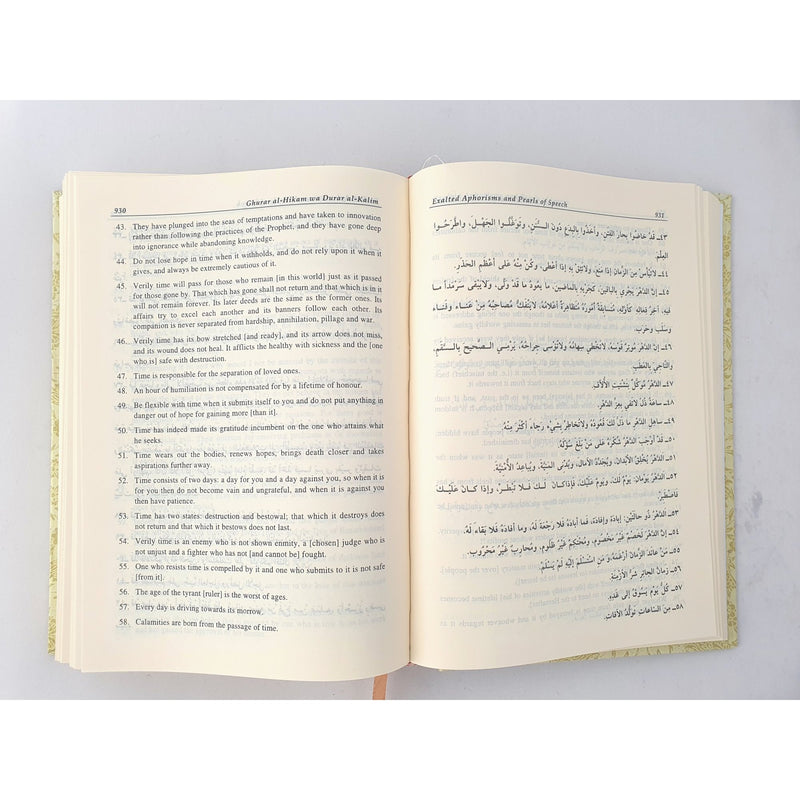 930
Ghurar al-Hikam wa Durar al-Kalim
43. They have plunged into the seas of temptations and have taken to innovation
rather than following the practices of the Prophet, and they have gone deep
into ignorance while abandoning knowledge.
44. Do not lose hope in time when it withholds, and do not rely upon it when it
gives, and always be extremely cautious of it.
45. Verily time will pass for those who remain [in this world] just as it passed
for those gone by. That which has gone shall not return and that which is in it
will not remain forever. Its later deeds are the same as the former ones. Its
affairs try to excel each another and its banners follow each other. Its
companion is never separated from hardship, annihilation, pillage and war.
46. Verily time has its bow stretched [and ready], and its arrow does not miss,
and its wound does not heal. It afflicts the healthy with sickness and the [one
who is] safe with destruction.
47. Time is responsible for the separation of loved ones.
48. An hour of humiliation is not compensated for by a lifetime of honour.
49. Be flexible with time when it submits itself to you and do not put anything in
danger out of hope for gaining more [than it].
50. Time has indeed made its gratitude incumbent on the one who attains what
he seeks.
51. Time wears out the bodies, renews hopes, brings death closer and takes
aspirations further away.
52. Time consists of two days: a day for you and a day against you, so when it is
for you then do not become vain and ungrateful, and when it is against you
then have patience.
53. Time has two states: destruction and bestowal; that which it destroys does
not return and that which it bestows does not last.
54. Verily time is an enemy who is not shown enmity, a [chosen] judge who is
not unjust and a fighter who has not [and cannot be] fought.
55. One who resists time is compelled by it and one who submits to it is not safe
[from it].
56. The age of the tyrant [ruler] is the worst of ages.
57. Every day is driving towards its morrow.
58. Calamities are born from the passage of time.
Exalted Aphorisms and Pearls of Speech
931
٤٣ـ قَد خاضُوا بِحارَ الفِتَنِ، وأَخَذُوا بِالبِدَعِ دُونَ السُّنَنِ، وتَوَغَّلُوا الجَهْلَ، واطَّرَحُوا
العِلْمَ.
٤٤ـ لاتَيْأَسْ مِنَ الزَّمانِ إذا مَنَعَ، ولاتَثِقْ بِهِ إذا أعْطى، وكُنْ مِنْهُ على أعْظَمِ الحَذَرِ.
٤٥ـ إنَّ الدَّهْرَ يَجْري بِالباقينَ، كَجَرْيِهِ بِالماضينَ، ما يَعُودُ ما قَد وَلّى، ولايَبْقى سَرْمَداً ما
فيهِ، آخِرُ فِعالِهِ كَأوَّلِهِ، مُتَسابِقَةٌ أُمُورُهُ مُتَظاهِرَةٌ أعْلامُهُ، لايَنْفَكُّ مُصاحِبُهُ مِنْ عَناء وَفَناء
وسَلْب وحَرَب.
٤٦ـ إنَّ الدَّهْرَ مُوتِرٌ قَوْسَهُ، لاتُخْطي سِهامُهُ ولاتُؤْسى جِراحُهُ، يَرْمِي الصَّحيحَ بِالسَّقَمِ،
والنّاجِيَ بِالعَطَبِ
٤٧ـ الدَّهْرُ مُوَكَّلٌ بِتَشْتيتِ الأُلاّفِ.
٤٨ـ ساعَةُ ذُلّ لاتَفي بِعِزِّ الدَّهْرِ.
٤٩ـ ساهِلِ الدَّهْرَ ما ذَلَّ لَكَ قَعُودُهُ ولاتُخاطِرْ بِشَيْء رَجاءَ أكْثَرَ مِنْهُ.
٥٠ـ قَد أوْجَبَ الدَّهْرُ شُكْرَهُ على مَنْ بَلَغَ سُؤْلَهُ.
٥١ـ الدَّهْرُ يُخْلِقُ الأبْدانَ، ويُجَدِّدُ الآمالَ، ويُدْنِي المَنِيَّةَ، ويُباعِدُ الأُمْنِيَّةَ.
٥٢ـ الدَّهْرُ يَوْمانِ، يَوْمٌ لَكَ، ويَوْمٌ عَلَيْكَ، فَإذا كانَ لَكَ فَلا تَبْطَرْ، وإذا كانَ عَلَيْكَ
فَاصْطَبِرْ.
٥٣ـ الدَّهْرُ ذُو حالَتَيْنِ: إبادَة وإفادَة، فَما أبادَهُ فَلا رَجْعَةَ لَهُ، وما أفادَهُ فَلا بَقاءَ لَهُ.
٥٤ـ إنَّ الدَّهْرَ لَخَصْمٌ غَيْرُ مَخْصُوم، ومُحْتَكِمٌ غَيْرُ ظَلُوم، ومُحارِبٌ غَيْرُ مَحْرُوب.
٥٥ـ مَنْ عانَدَ الزَّمانَ أرْغَمَهُ، ومَنِ اسْتَسْلَمَ إلَيْهِ لَمْ يَسْلَمْ.
٥٦ـ زَمانُ الجائِرِ شَرُّ الأزْمِنَةِ.
٥٧ـ كُلُّ يَوْم يَسُوقُ إلى غَدِهِ.
٥٨ـ مِنَ السّاعاتِ تَوَلُّدُ الآفاتِ.